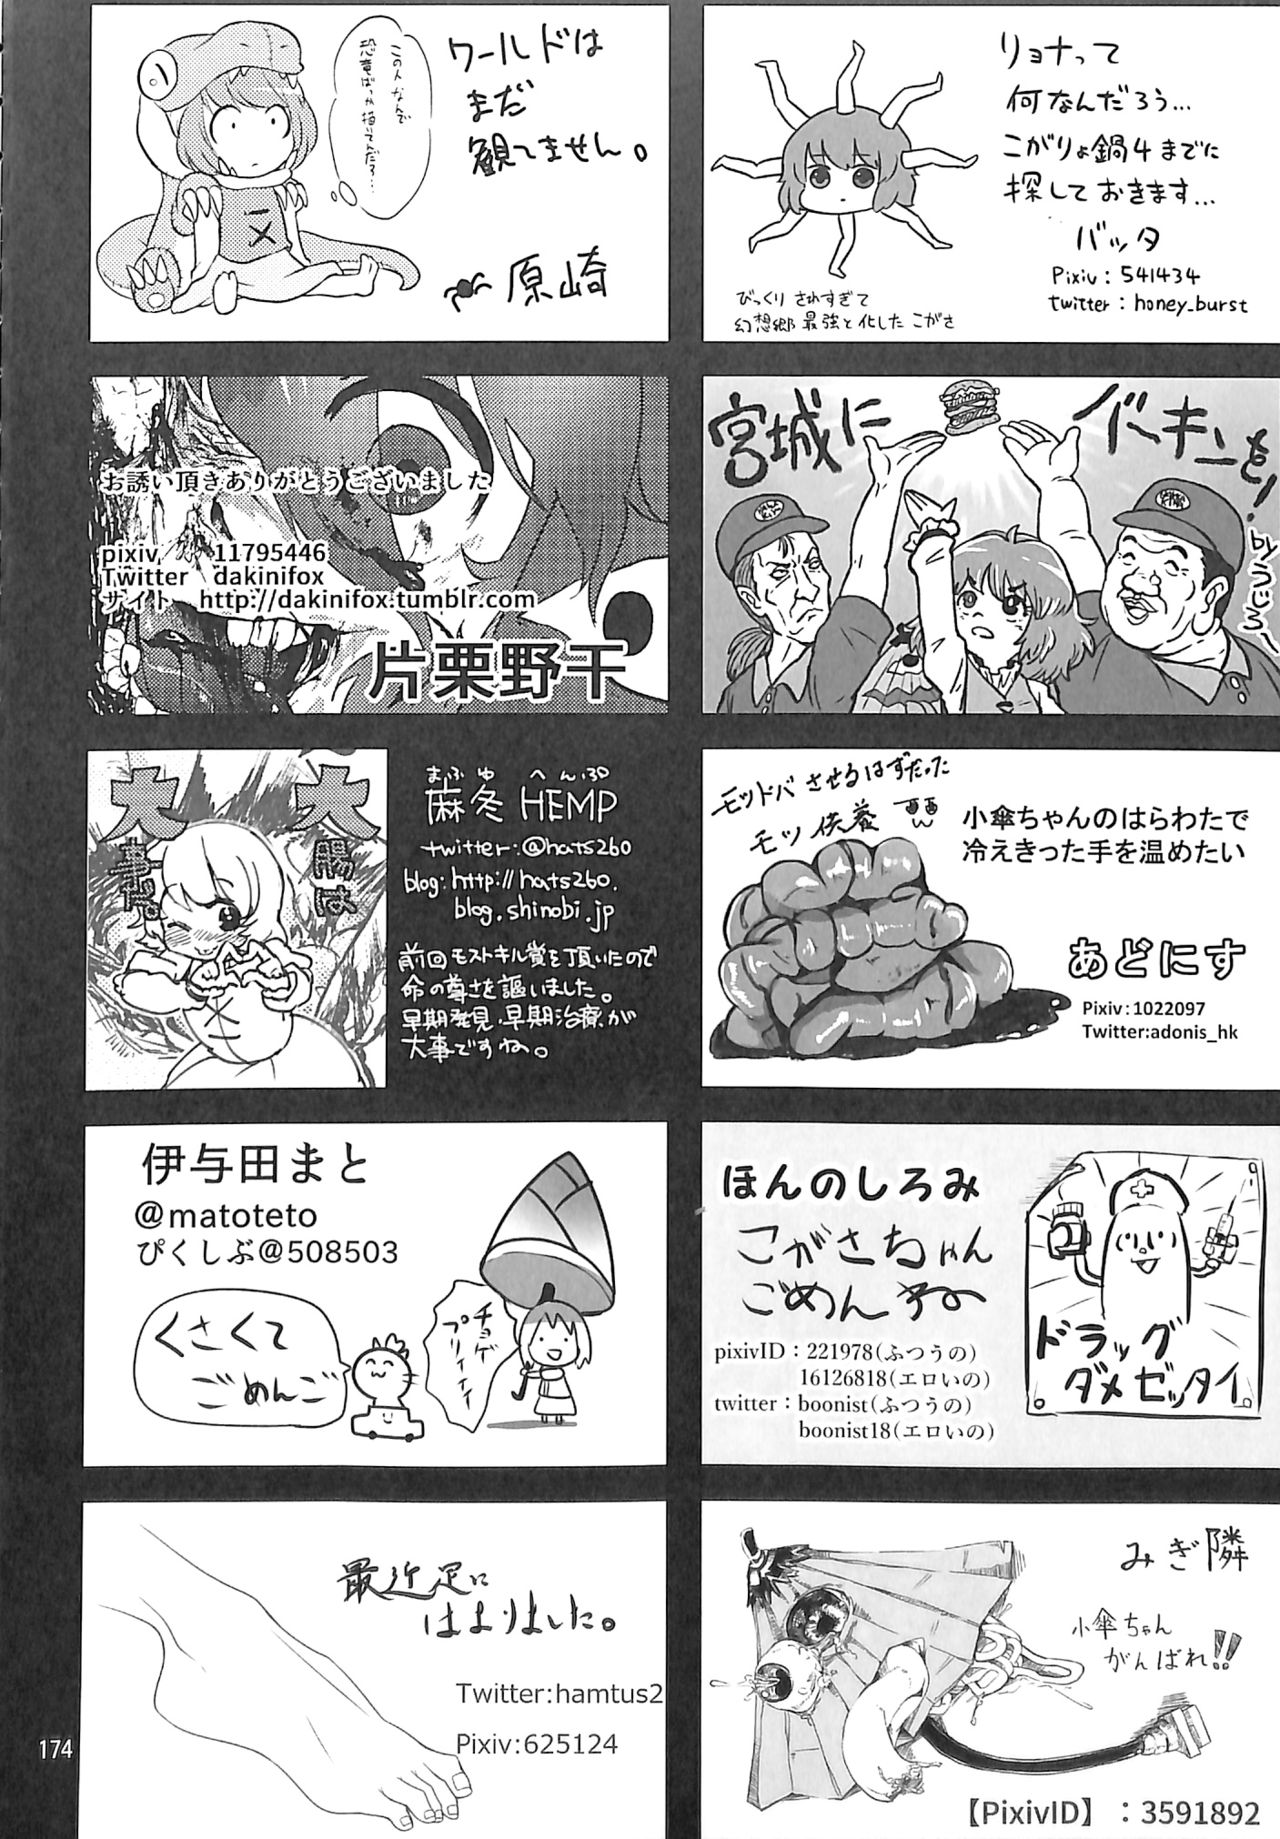 ワールドは
まだ
観てません。
この人なんで
恐竜ばっか描いてんだろ…
原崎
リョナって
何なんだろう…
こがりょ鍋4までに
探しておきます…
バッタ
Pixiv : 541434
twitter : honey_burst
びっくり されすぎて
幻想郷 最強と化した こがさ
お誘い頂きありがとうございました
pixiv 11795446
Twitter dakinifox
サイト http://dakinifox.tumblr.com
片栗野干
宮城に
バーキンを!
byうじろー
大腸は
大事。
まふゆ へんぷ
麻冬 HEMP
twitter:@hats260
blog:http://hats260.
blog.shinobi.jp
前回モストキル賞を頂いたので
命の尊さを謳いました。
早期発見、早期治療が
大事ですね。
モツドバさせるはずだった
モツ供養
小傘ちゃんのはらわたで
冷えきった手を温めたい
あどにす
Pixiv:1022097
Twitter:adonis_hk
伊与田まと
@matoteto
ぴくしぶ@508503
くさくて
ごめんご
チョゲ
プリィィィ
ほんのしろみ
こがさちゃん
ごめんね
pixivID：221978(ふつうの)
16126818(エロいの)
twitter：boonist(ふつうの)
boonist18(エロいの)
ドラッグ
ダメゼッタイ
最近足に
はまりました。
Twitter:hamtus2
Pixiv:625124
みぎ隣
小傘ちゃん
がんばれ!!
【PixivID】：3591892
174